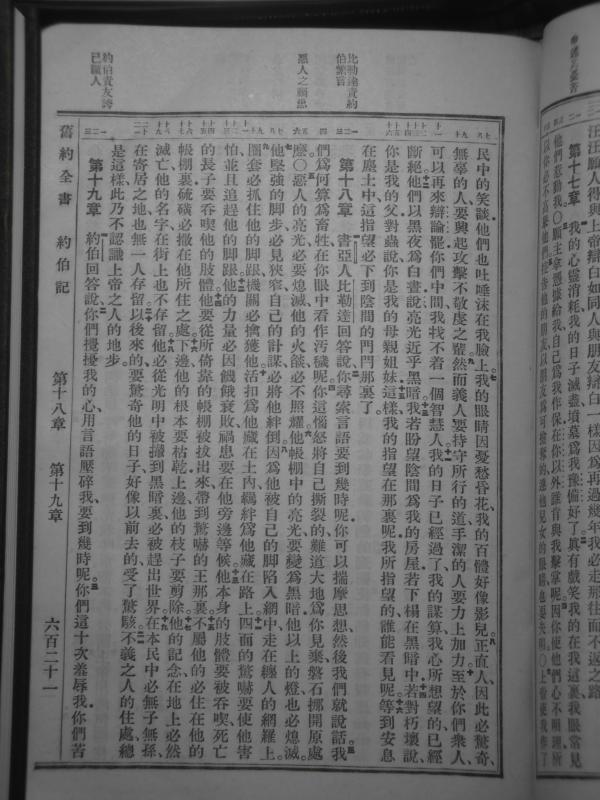 三汪汪願人得與上帝辯白如同人與朋友辯白一樣因爲再過幾年我必走那往而不返之路
第十七章 我的心靈消耗我的日子滅盡墳墓爲我豫備好了真有戲笑我的在我這裏我眼常見
他們惹動我〇願主拿憑據給我自己爲我作保在你以外誰肯與我擊掌呢因你使他們心不明理所
以你必不高舉他們控告他的朋友以朋友爲可搶奪的連他兒女的眼睛也要失明〇上帝使我作了
比勒達責約
伯繁言
惡人之顯患
約伯責友誇
己藐人
民中的笑談他們也吐唾沫在我臉上我的眼睛因憂愁昏花我的百體好像影兒正直人因此必驚奇、
無辜的人要興起攻擊不敬虔之輩然而義人要持守所行的道手潔的人要力上加力至於你們衆人、
可以再來辯論罷你們中間我找不着一個智慧人我的日子已經過了我的謀算我心所想望的已經
斷絕他們以黑夜爲白晝說亮光近乎黑暗我若盼望陰間爲我的房屋若下榻在黑暗中若對朽壞說、
你是我的父對蟲說你是我的母親姐妹這樣我的指望在那裏呢我所指望的誰能看見呢等到安息
在塵土中這指望必下到陰間的門閂那裏了
第十八章 書亞人比勒達回答說你尋索言語要到幾時呢你可以揣摩思想然後我們就說話我
們爲何算爲畜牲在你眼中看作汚穢呢你這惱怒將自己撕裂的難道大地爲你見棄磐石挪開原處
麼〇惡人的亮光必要熄滅他的火燄必不照耀他帳棚中的亮光要變爲黑暗他以上的燈也必熄滅。
他堅強的脚步必見狹窄自己的計謀必將他絆倒因爲他被自己的脚陷入網中走在纏人的網羅上。
圈套必抓住他的脚跟機關必擒獲他活扣爲他藏在土內羈絆爲他藏在路上四面的驚嚇要使他害
怕並且追趕他的脚跟他的力量必因饑餓衰敗禍患要在他旁邊等候他本身的肢體要被吞喫死亡
的長子要吞喫他的肢體他要從所倚靠的帳棚被拔出來帶到驚嚇的王那裏不屬他的必住在他的
帳棚裏硫磺必撒在他所住之處下邊他的根本要枯乾上邊他的枝子要剪除他的記念在地上必然
滅亡他的名字在街上也不存留他必從光明中被攆到黑暗裏必被趕出世界在本民中必無子無孫、
在寄居之地也無一人存留以後來的要驚奇他的日子好像以前去的受了驚駭不義之人的住處總
是這樣此乃不認識上帝之人的地步。
第十九章 約伯回答說你們攪擾我的心用言語壓碎我要到幾時呢你們這十次羞辱我你們苦
舊約全書 約伯記 第十八章 第十九章 六百二十一